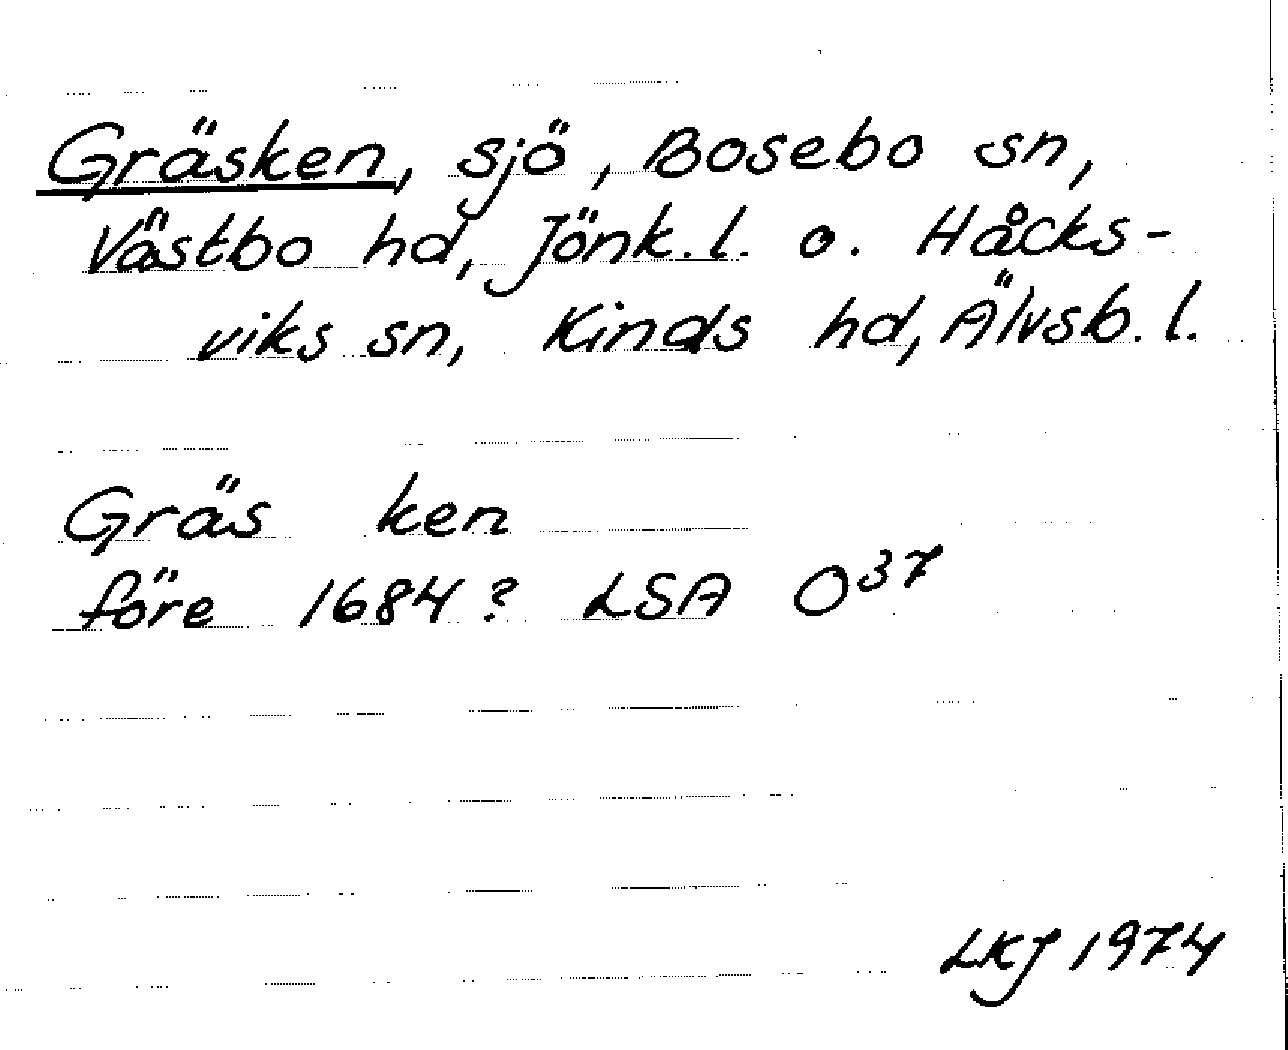 Gräsken, sjö, Bosebo sn,
Västbo hd, Jönk. l. o. Håcks-
viks sn, Kinds hd, Älvsb. l.
Gräs ken
före 1684? LSA O37
LKJ 1974